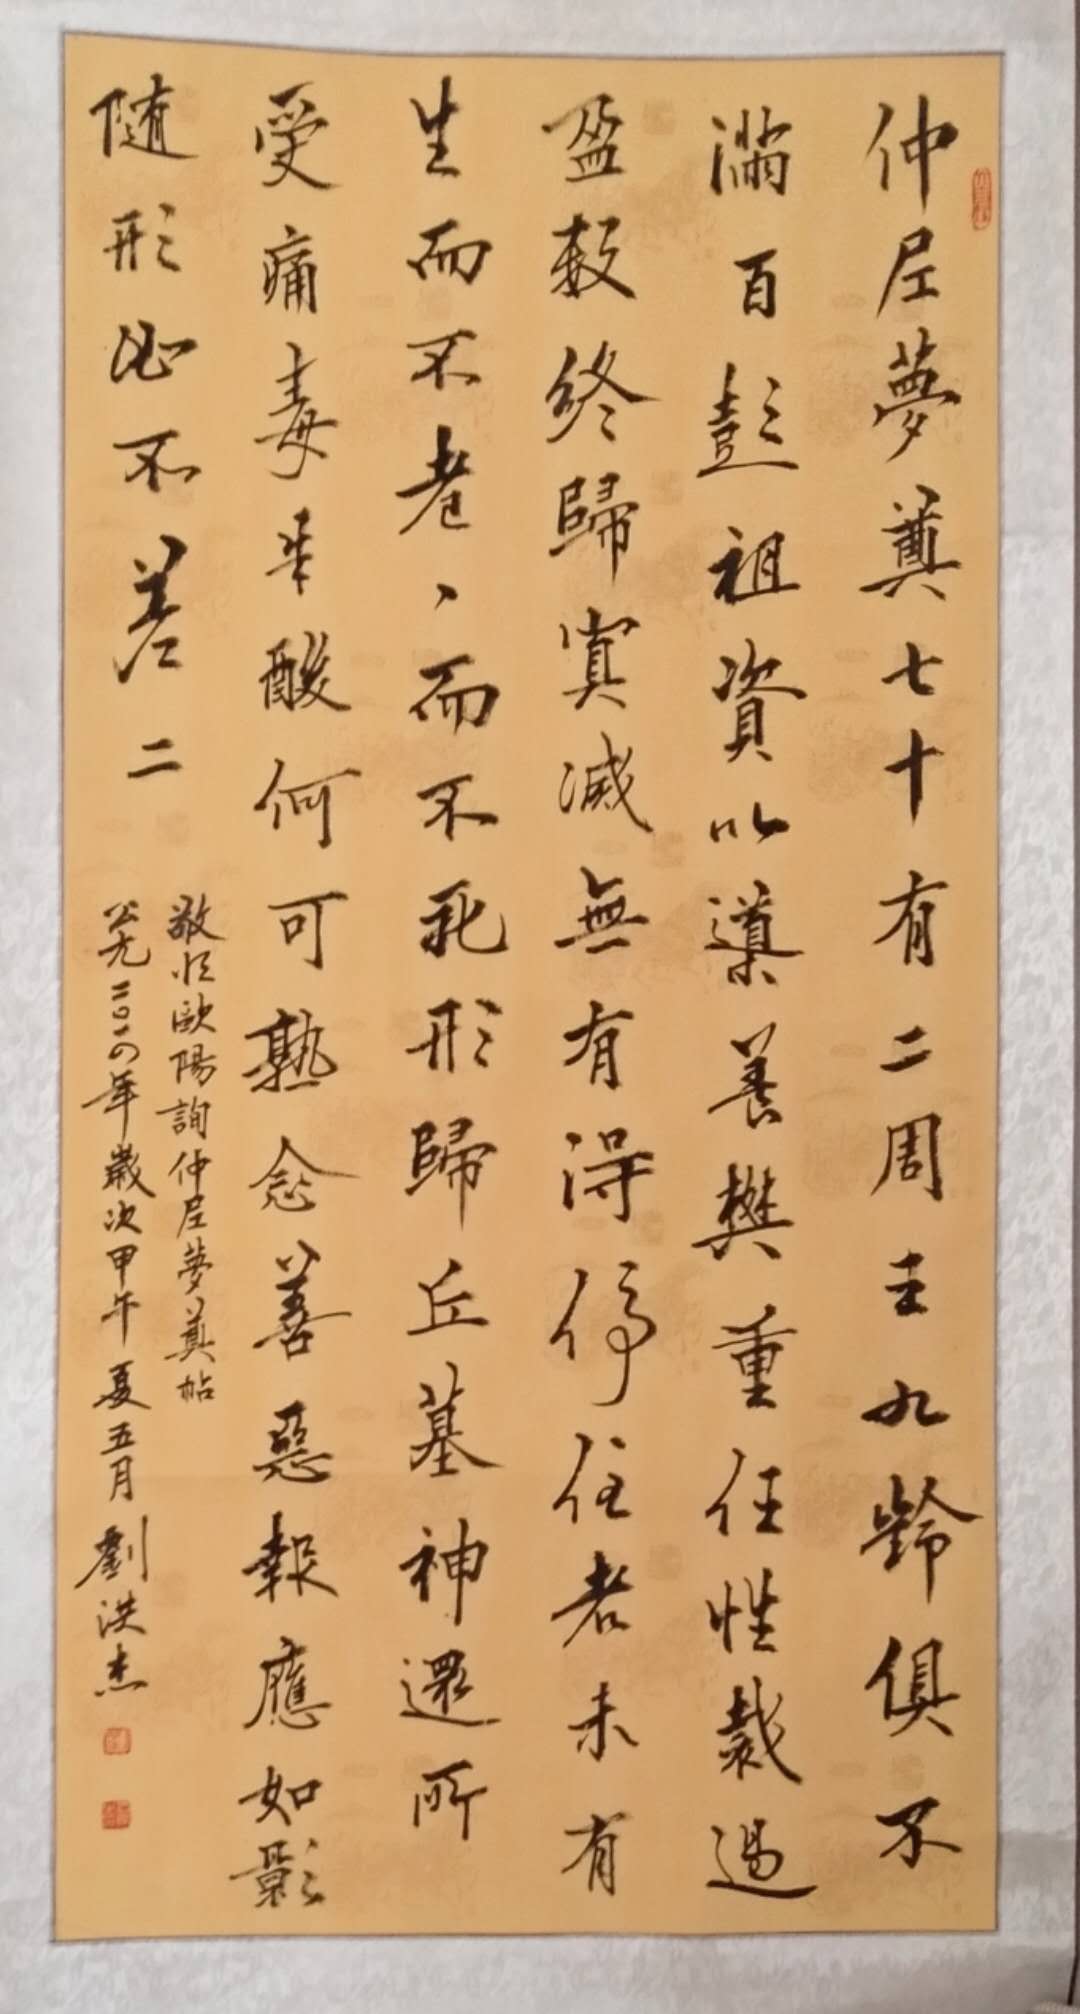 仲尼夢奠七十有二周王九齡俱不
滿百彭祖資以導養樊重任性裁過
盈數終歸冥滅無有得停住者未有
生而不老、而不死形歸丘墓神還所
受痛毒辛酸何可熟念善惡報應如影
隨形必不差二
敬臨歐陽詢仲尼夢奠帖
公元二〇一四年歲次甲午夏五月劉洪杰